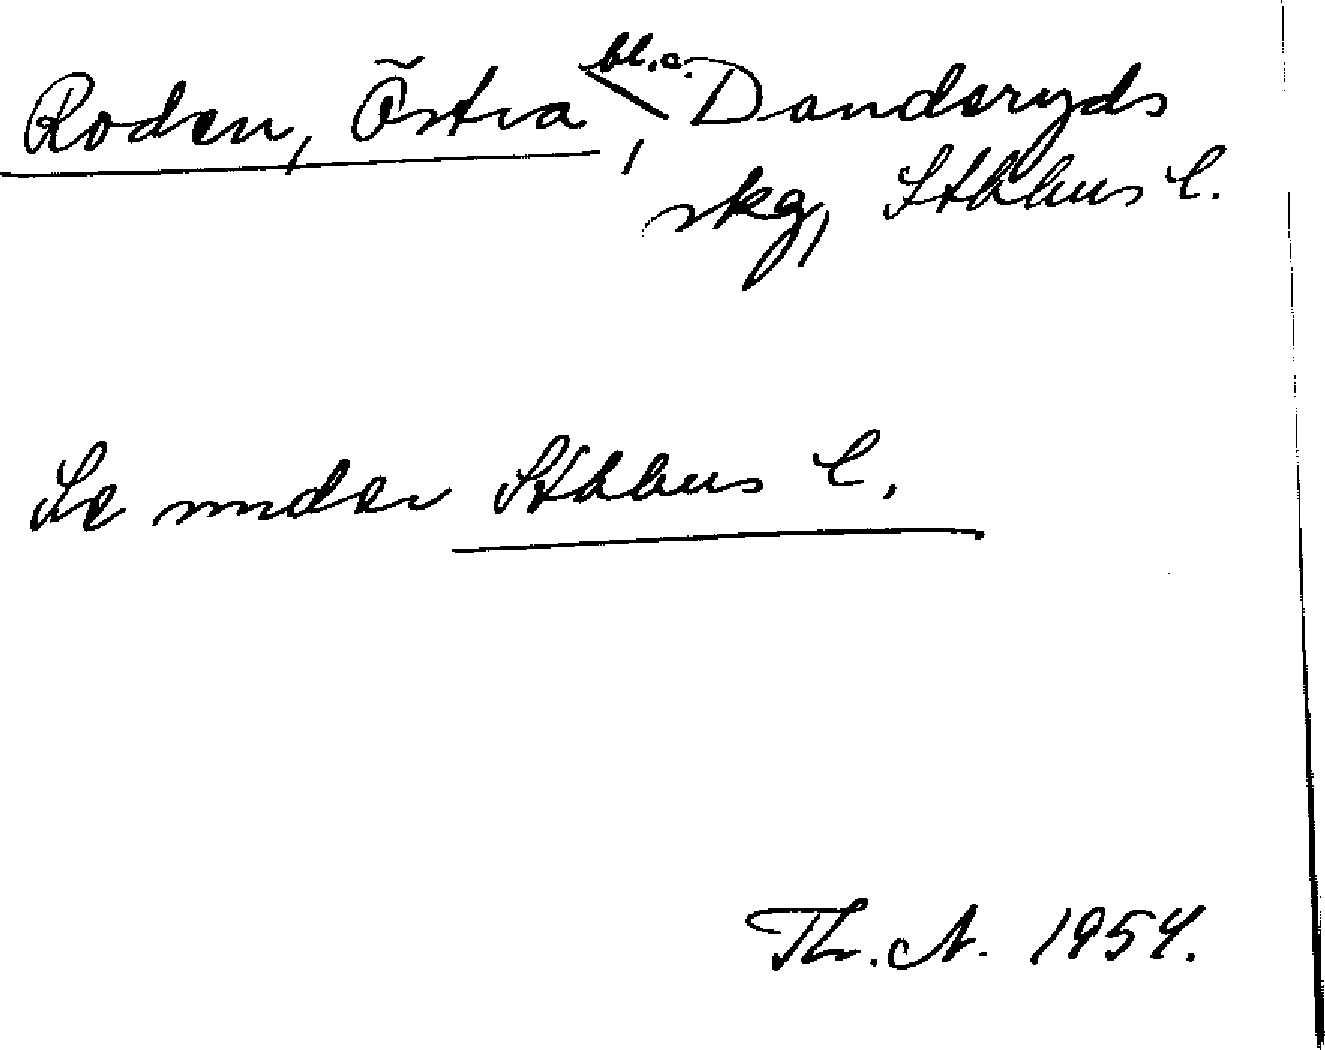 Roden, Östra, bl.a. Danderyds
skg, Sthlms l.
Se under Sthlms l.
Th. A. 1954.